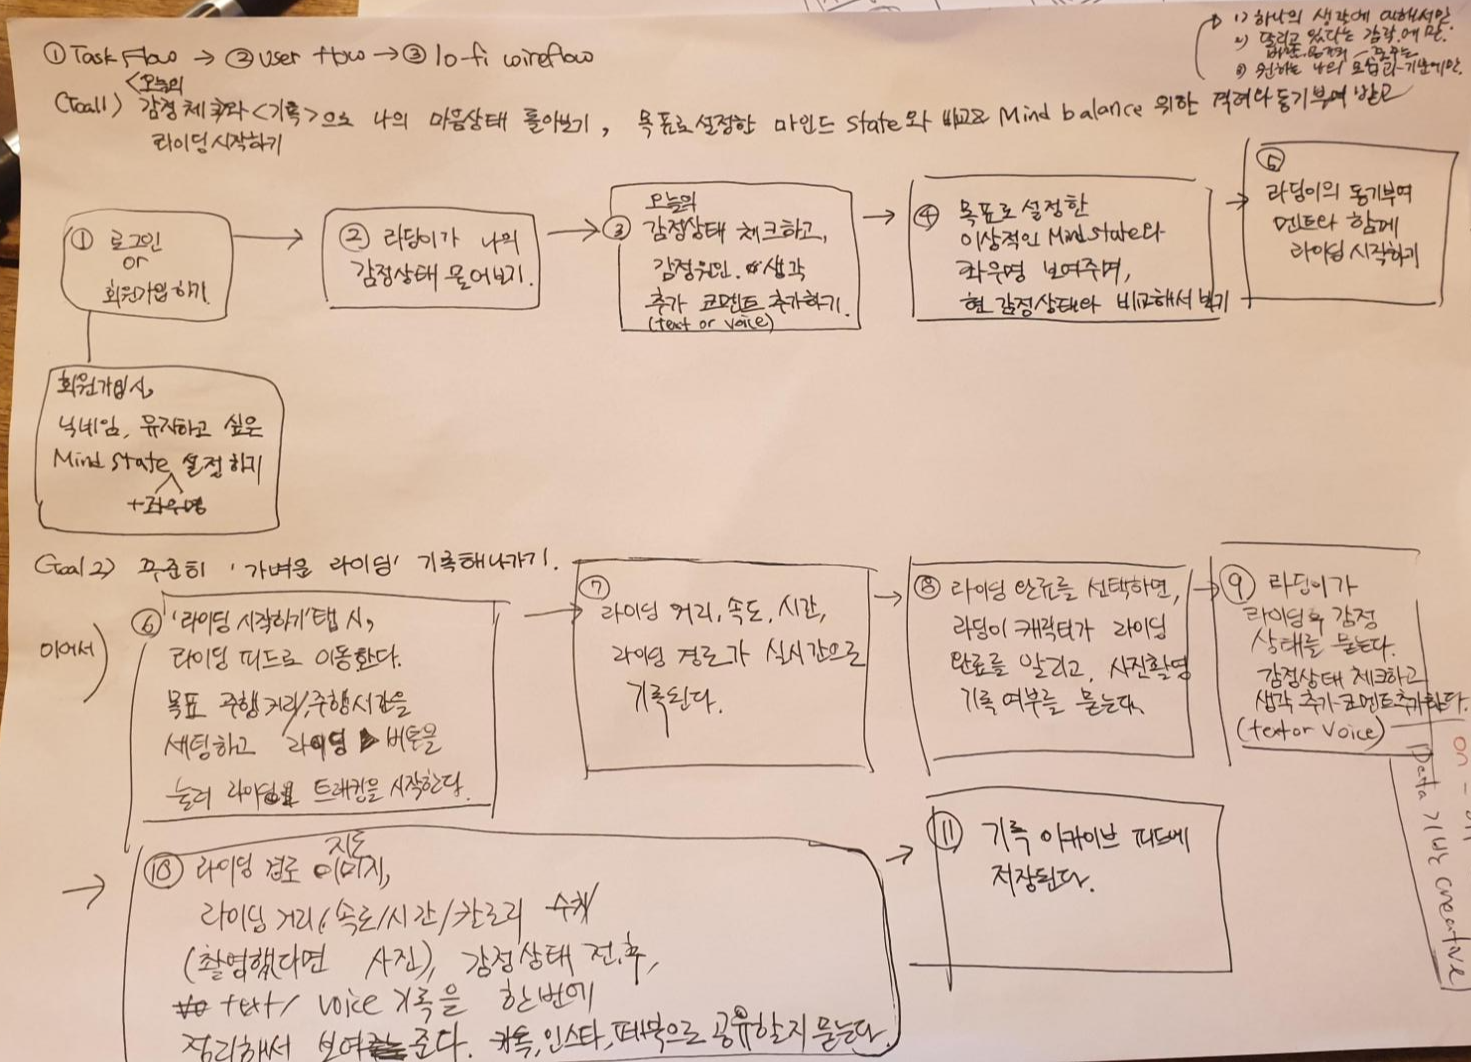 ① Task Flow → ② user flow → ③ lo-fi wireflow
1) 하나의 생각에 의해서만.
2) 달리고 있다는 감각에만.
3) 원하는 나의 모습과
<오늘의
Goal 1) 감정 체크와 <기록>으로 나의 마음상태 돌아보기, 목표로 설정한 마인드 state와 비교로 Mind balance 위한 격려와 동기부여 받고
라이딩 시작하기
① 로그인
or
회원가입하기.
② 라딩이가 나의
감정상태 물어보기.
③ 오늘의
감정상태 체크하고,
감정원인. 생각
추가 코멘트 추가하기.
(text or voice)
④ 목표로 설정한
이상적인 Mind state와
좌우명 보여주며,
현 감정상태와 비교해서 보기
⑤
라딩이의 동기부여
멘트와 함께
라이딩 시작하기
회원가입시,
닉네임, 유지하고 싶은
Mind state 설정하기
+좌우명
Goal 2) 꾸준히 '가벼운 라이딩' 기록해나가기.
이어서)
⑥ '라이딩 시작하기' 탭 시,
라이딩 피드로 이동한다.
목표 주행거리/주행시간을
세팅하고 라이딩 ▶ 버튼을
눌러 라이딩 트래킹을 시작한다.
⑦
라이딩 거리, 속도, 시간,
라이딩 경로가 실시간으로
기록된다.
⑧ 라이딩 완료를 선택하면,
라딩이 캐릭터가 라이딩
완료를 알리고, 사진촬영
기록 여부를 묻는다.
⑨ 라딩이가
라이딩 후 감정
상태를 묻는다.
감정상태 체크하고
생각 추가 코멘트 추가한다.
(text or voice)
Data 기반 creative
⑩ 라이딩 경로 지도 이미지,
라이딩 거리/속도/시간/칼로리 수치
(촬영했다면 사진), 감정상태 전.후,
text/ voice 기록을 한번에
정리해서 보여준다. 카톡, 인스타, 페북으로 공유할지 묻는다.
⑪ 기록 아카이브 피드에
저장된다.